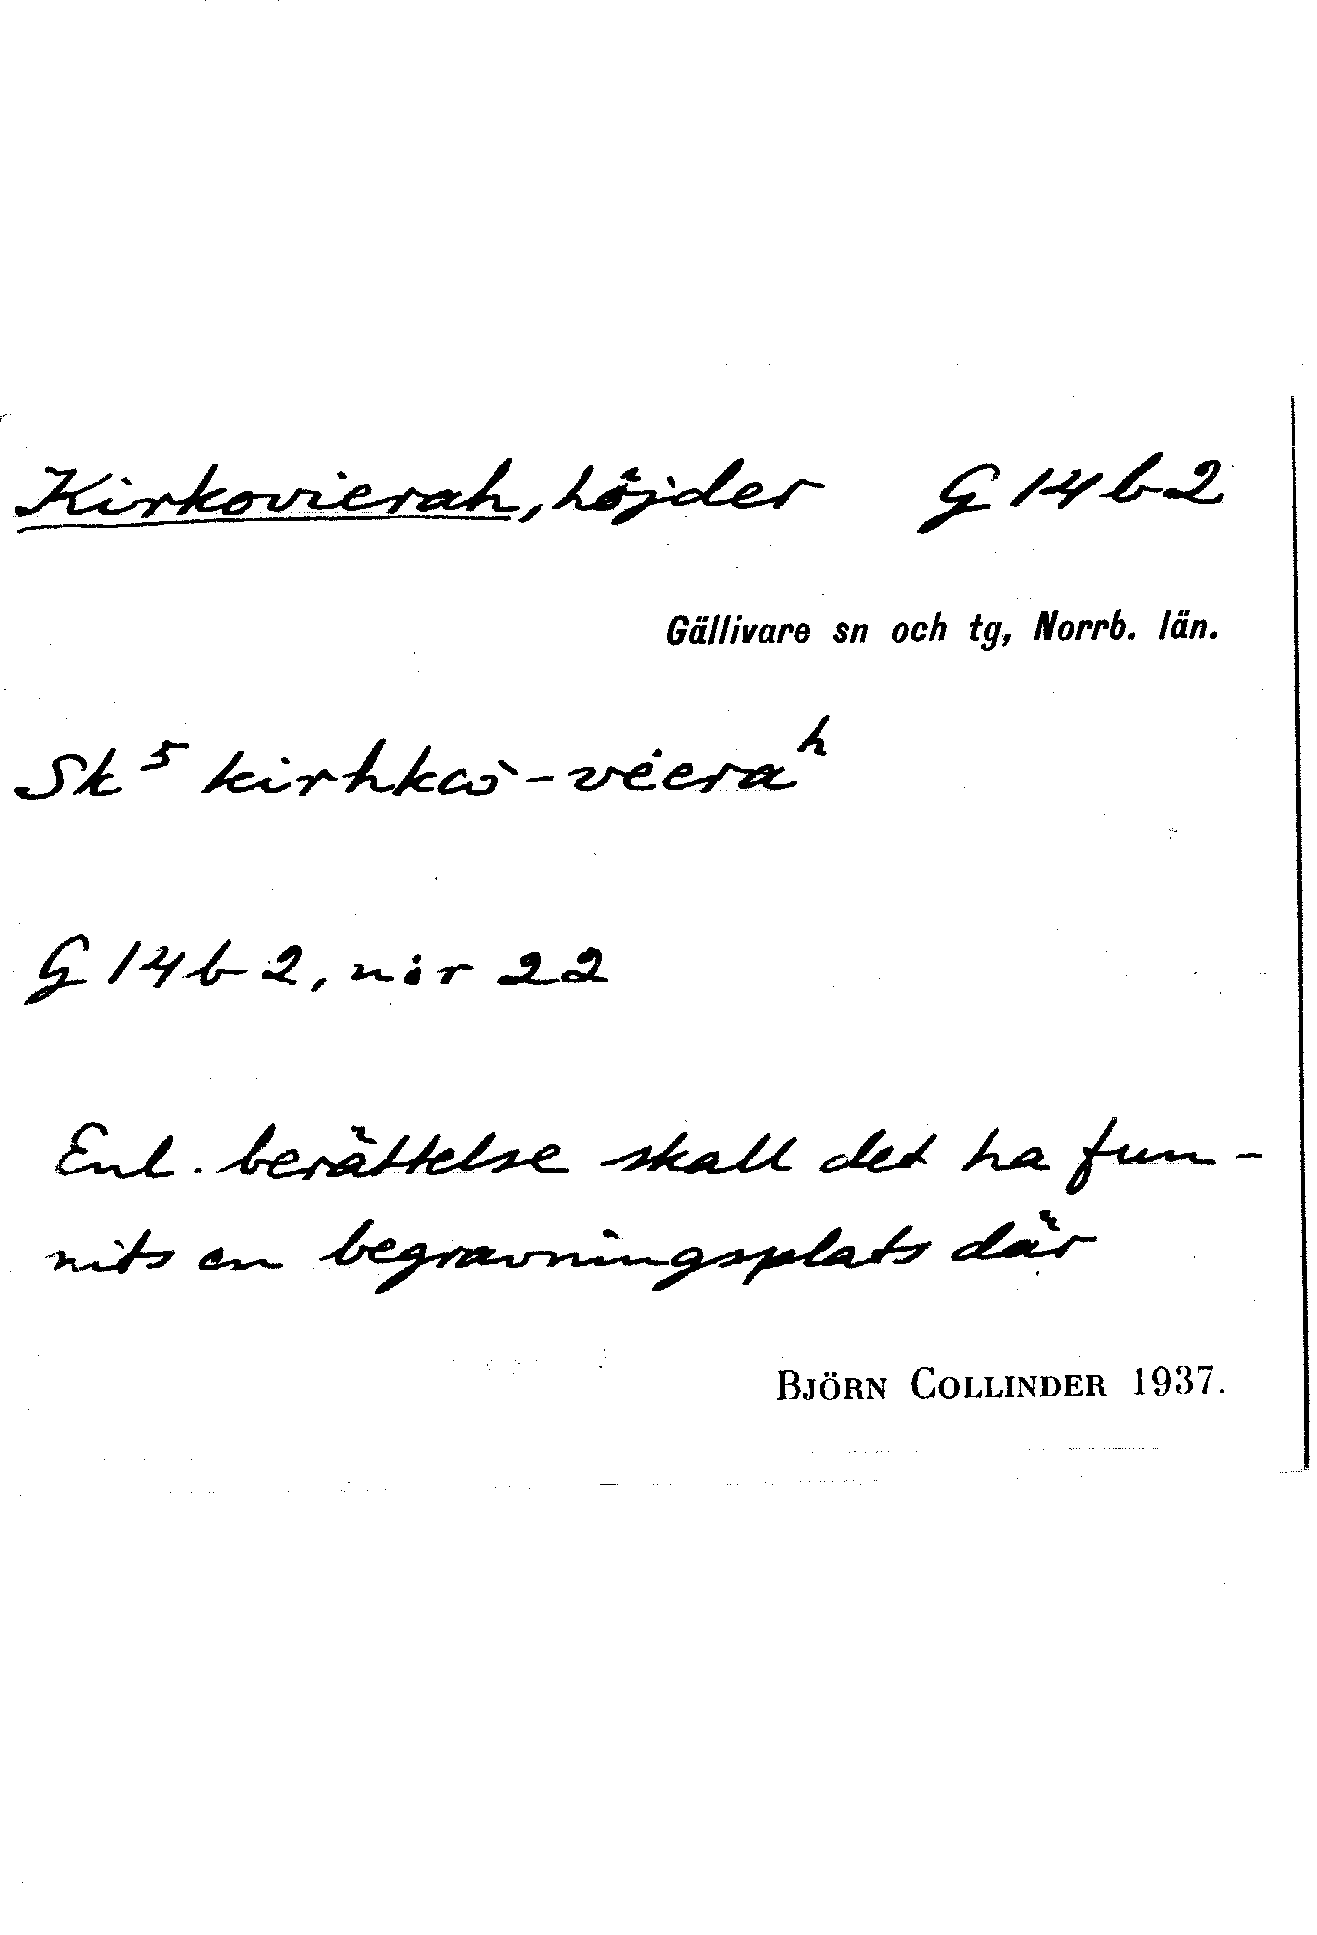 Kirkovierah, höjder G 14 b 2
Gällivare sn och tg, Norrb. län.
Sk⁵ kirhkὼ-vėeraʰ
G 14 b 2, n:r 22
Enl. berättelse skall det ha fun-
nits en begravningsplats där
BJÖRN COLLINDER 1937.